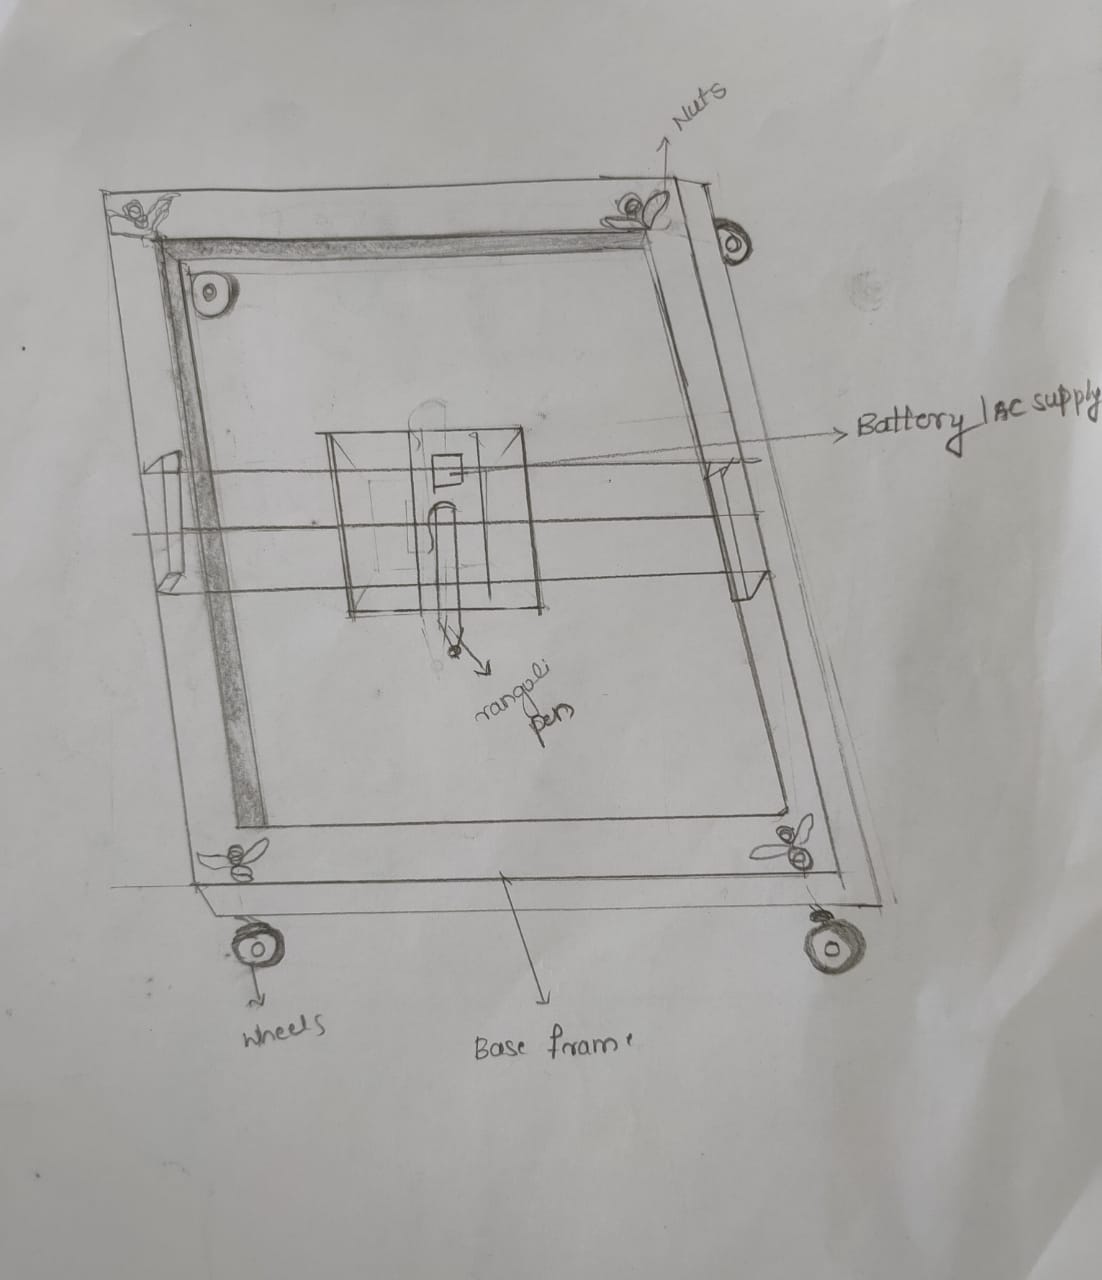 Nuts
Battery / AC supply
rangoli
pen
Wheels
Base frame